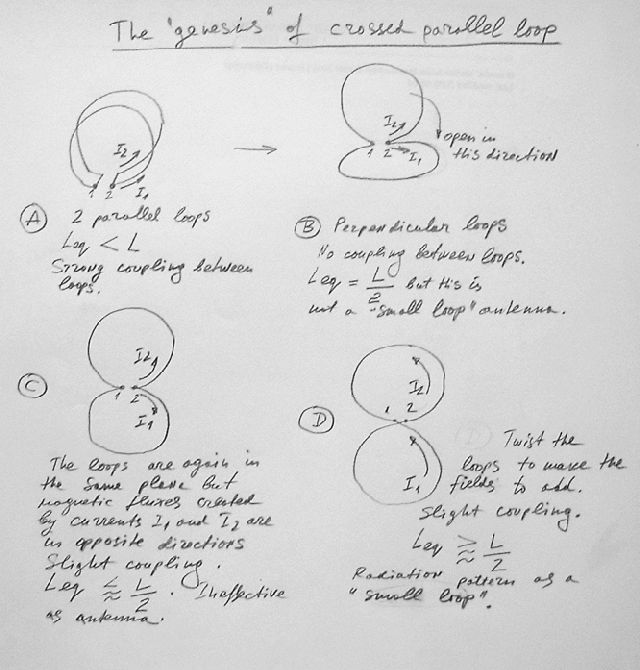 The "genesis" of crossed parallel loop
I2
1 2 I1
I2
1 2 I1
open in
this direction
A
2 parallel loops
Leq < L
Strong coupling between
loops.
B
Perpendicular loops
No coupling between loops.
Leq = L/2 but this is
not a "small loop" antenna.
I2
1 2
I1
C
The loops are again in
the same plane but
magnetic fluxes created
by currents I1 and I2 are
in opposite directions
Slight coupling.
Leq ⪅ L/2. Ineffective
as antenna.
I2
1 2
I1
D
Twist the
loops to make the
fields to add.
Slight coupling.
Leq ⪆ L/2
Radiation pattern as a
"small loop".